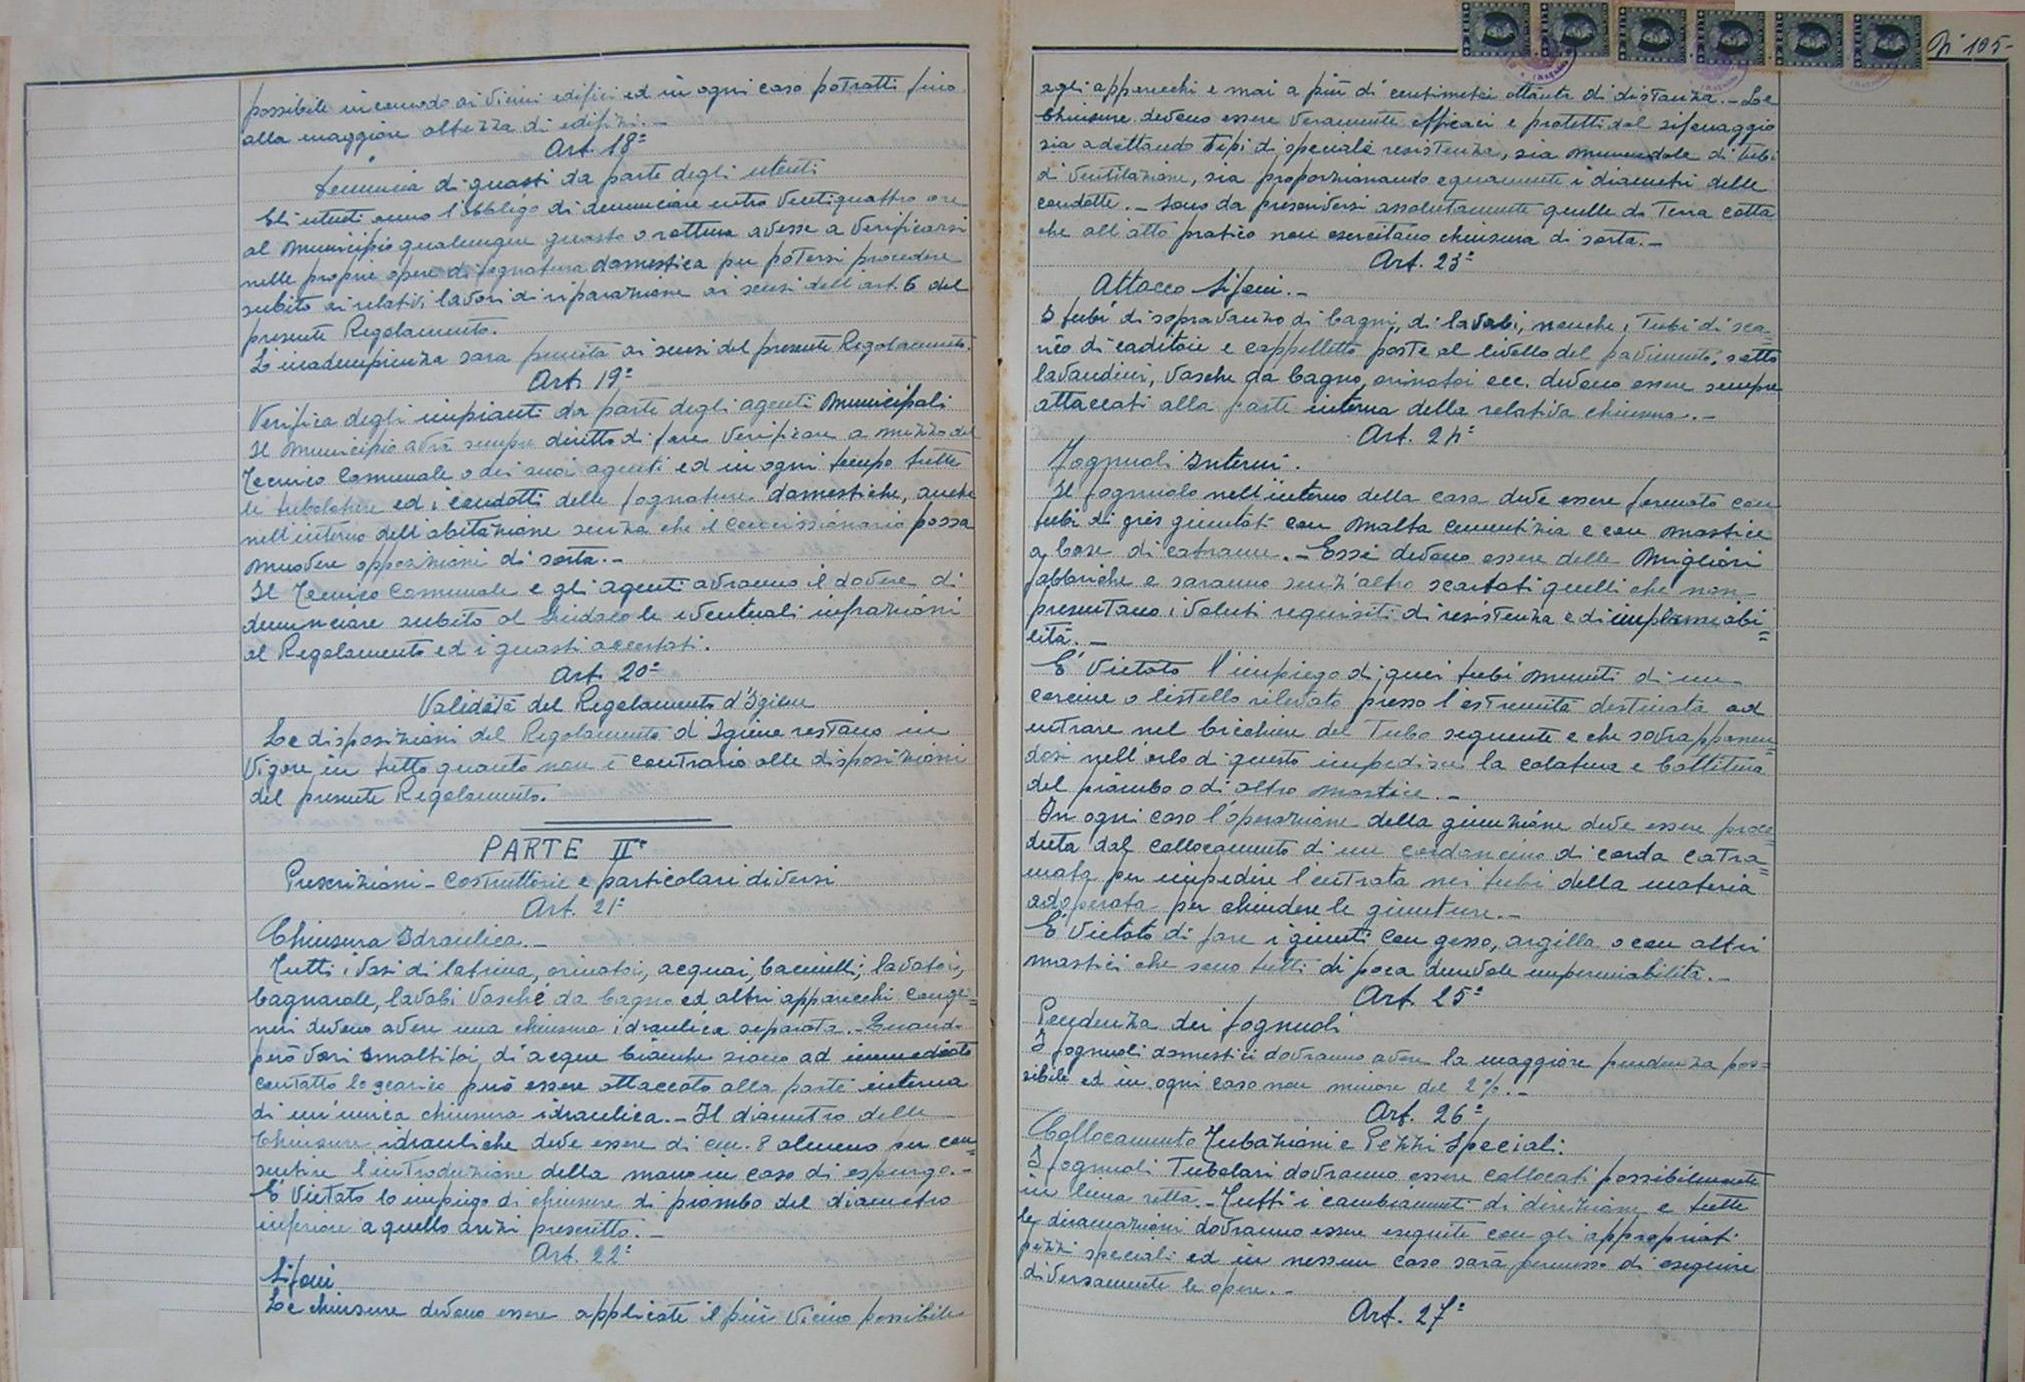 possibile incomodo ai vicini edifici ed in ogni caso potratti fino
alla maggiore altezza di edifizi. -
Art. 18°
Denuncia di guasti da parte degli utenti
Gli utenti anno l'obbligo di denunciare entro ventiquattro ore
al Municipio qualunque guasto o rottura avesse a verificarsi
nelle proprie opere di fognatura domestica per potersi procedere
subito ai relativi lavori di riparazione ai sensi dell'art. 6 del
presente Regolamento.
L'inadempienza sara punita ai sensi del presente Regolamento.
Art. 19°
Verifica degli impianti da parte degli agenti Municipali
Il Municipio avrà sempre diritto di fare verificare a mezzo del
Tecnico Comunale o dei suoi agenti ed in ogni tempo tutte
le tubolature ed i condotti delle fognature domestiche, anche
nell'interno dell'abitazione senza che il concessionario possa
muovere opposizioni di sorta. -
Il Tecnico Comunale e gli agenti avranno il dovere di
denunciare subito al Sindaco le eventuali infrazioni
al Regolamento ed i guasti accertati.
Art. 20°
Validità del Regolamento d'Igiene
Le disposizioni del Regolamento d'Igiene restano in
vigore in tutto quanto non è contrario alle disposizioni
del presente Regolamento.
PARTE II°
Prescrizioni - Costruttorie e particolari diversi
Art. 21°
Chiusura Idraulica. -
Tutti i vasi di latrina, orinatoi, acquai, bacinelli, lavatoi,
bagnarole, lavabi vasche da bagno ed altri apparecchi conge=
neri devono avere una chiusura idraulica separata. - Quand
però vari smaltitoi di acque bianche siano ad immediato
contatto lo scarico può essere attaccato alla parte interna
di un'unica chiusura idraulica. - Il diametro delle
Chiusure idrauliche deve essere di cm. 8 almeno per con=
sentire l'introduzione della mano in caso di espurgo. -
E' vietato lo impiego di chiusure di piombo del diametro
inferiore a quello anzi prescritto. -
Art. 22°
Sifoni
Le chiusure devono essere applicate il più vicino possibile
N° 105-
agli apparecchi e mai a più di centimetri ottanta di distanza. - Le
Chiusure devono essere veramente efficaci e protetti dal sifonaggio
sia adottando tipi di speciale resistenza, sia munendole di tubi
di ventilazione, sia proporzionando equamente i diametri delle
condotte. - Sono da proscriversi assolutamente quelle di Terra cotta
che all'atto pratico non esercitano chiusura di sorta. -
Art. 23°
Attacco Sifoni. -
I tubi di sopravanzo di bagni, di lavabi, nonche i Tubi di sca=
rico di caditoie e cappelletto poste al livello del pavimento, sotto
lavandini, vasche da bagno, orinatoi ecc. devono essere sempre
attaccati alla parte interna della relativa chiusura. -
Art. 24°
Fognuoli Interni.
Il fognuolo nell'interno della casa deve essere formato con
tubi di grès giuntati con malta cementizia e con mastice
a base di catrame. - Essi devono essere delle migliori
fabbriche e saranno senz'altro scartati quelli che non
presentano i voluti requisiti di resistenza e di impermeabi=
lità. -
E' vietato l'impiego di quei tubi muniti di un
corcine o listello rilevato presso l'estremità destinata ad
entrare nel bicchiere del Tubo seguente e che sovrapponen=
dosi nell'orlo di questo impedisce la colatura e battitura
del piombo o di altro mastice. -
In ogni caso l'operazione della giunzione deve essere proce=
duta dal collocamento di un cordoncino di corda catra=
mata per impedire l'entrata nei tubi della materia
adoperata per chiudere le giunture. -
E' vietato di fare i giunti con gesso, argilla o con altri
mastici che sono tutti di poca durevole impermiabilità. -
Art. 25°
Pendenza dei fognuoli
I fognuoli domestici dovranno avere la maggiore pendenza pos=
sibile ed in ogni caso non minore del 2%. -
Art. 26°
Collocamento Tubazioni e Pezzi Speciali.
I fognuoli Tubolari dovranno essere collocati possibilmente
in linea retta. - Tutti i cambiamenti di direzione e tutte
le diramazioni dovranno essere eseguite con gli appropriati
pezzi speciali ed in nessun caso sarà permesso di eseguire
diversamente le opere. -
Art. 27°